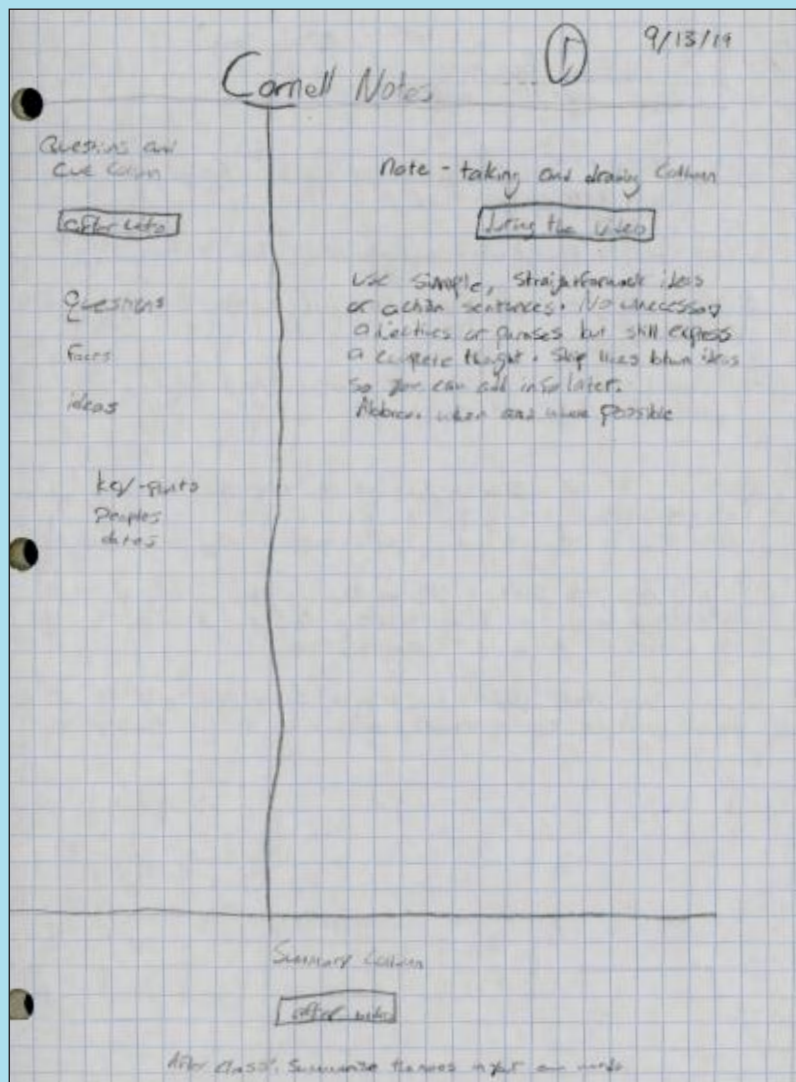 9/13/19
1
Cornell Notes
Questions and
Cue Column
after video
Questions
Facts
ideas
key-points
Peoples
dates
Note - taking and drawing Column
during the video
Use simple, straightforward ideas
or action sentences. No unnecessary
adjectives or phrases but still express
a complete thought. Skip lines btwn ideas
so you can add info later.
Abbrev. when and where possible
Summary Column
after video
After class, Summarize in your own words